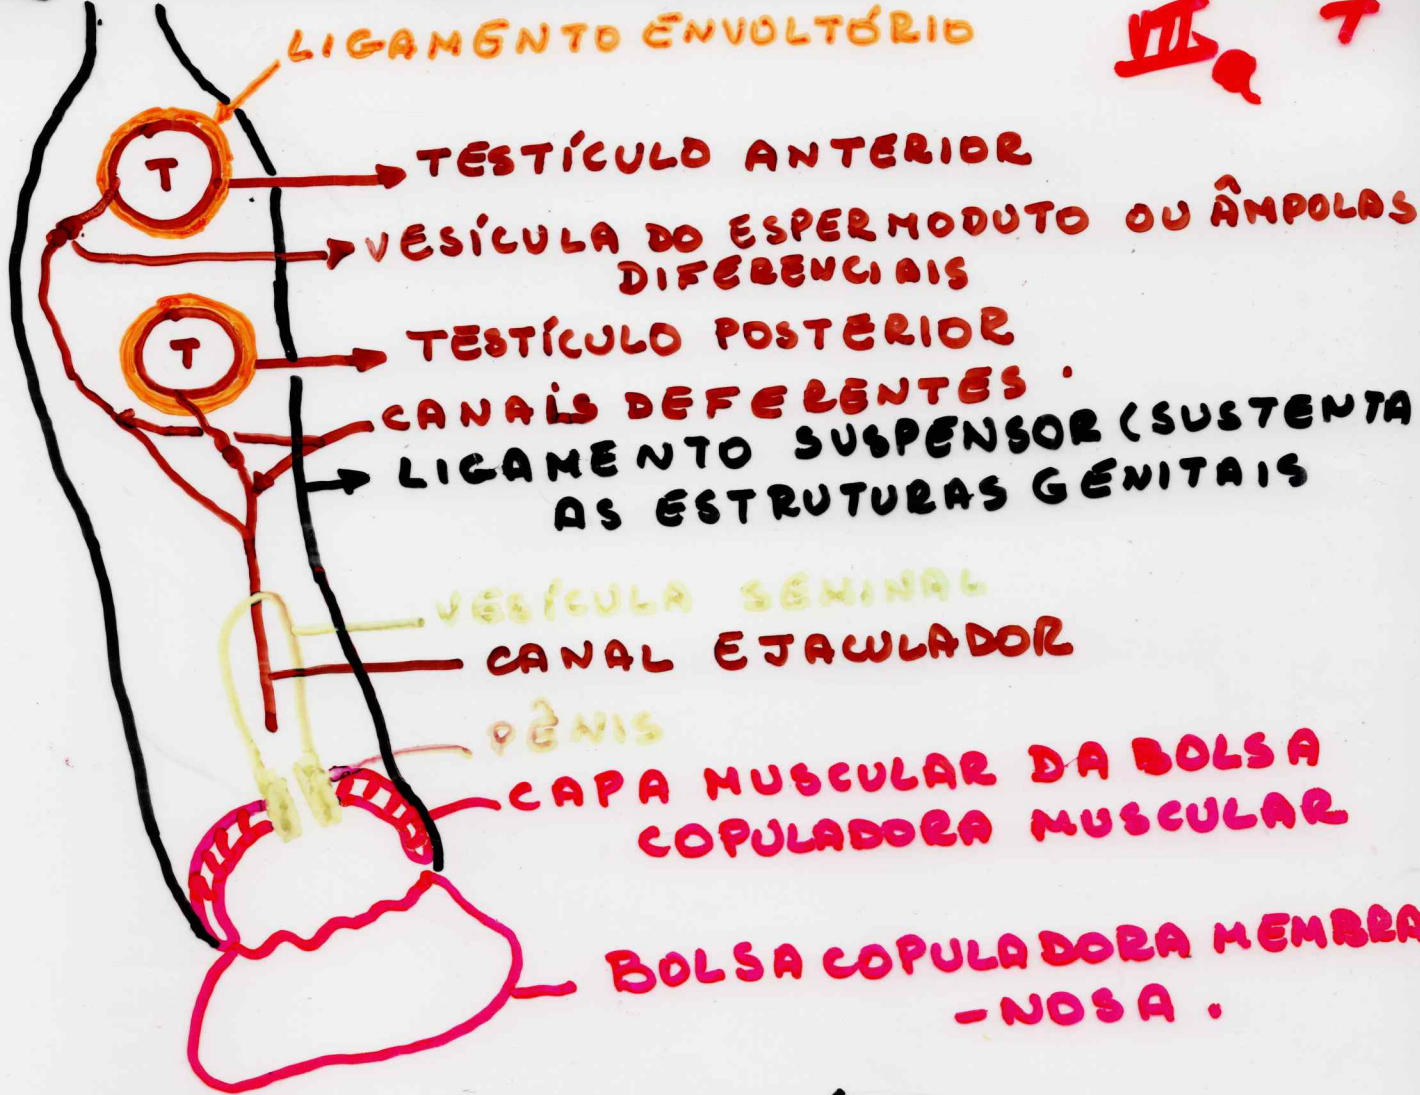 LIGAMENTO ENVOLTÓRIO
VII a T
T
TESTÍCULO ANTERIOR
VESÍCULA DO ESPERMODUTO OU ÂMPOLAS
DIFERENCIAIS
T
TESTÍCULO POSTERIOR
CANAIS DEFERENTES.
LIGAMENTO SUSPENSOR (SUSTENTA
AS ESTRUTURAS GENITAIS
VESÍCULA SEMINAL
CANAL EJACULADOR
PÊNIS
CAPA MUSCULAR DA BOLSA
COPULADORA MUSCULAR
BOLSA COPULADORA MEMBRA
-NOSA.